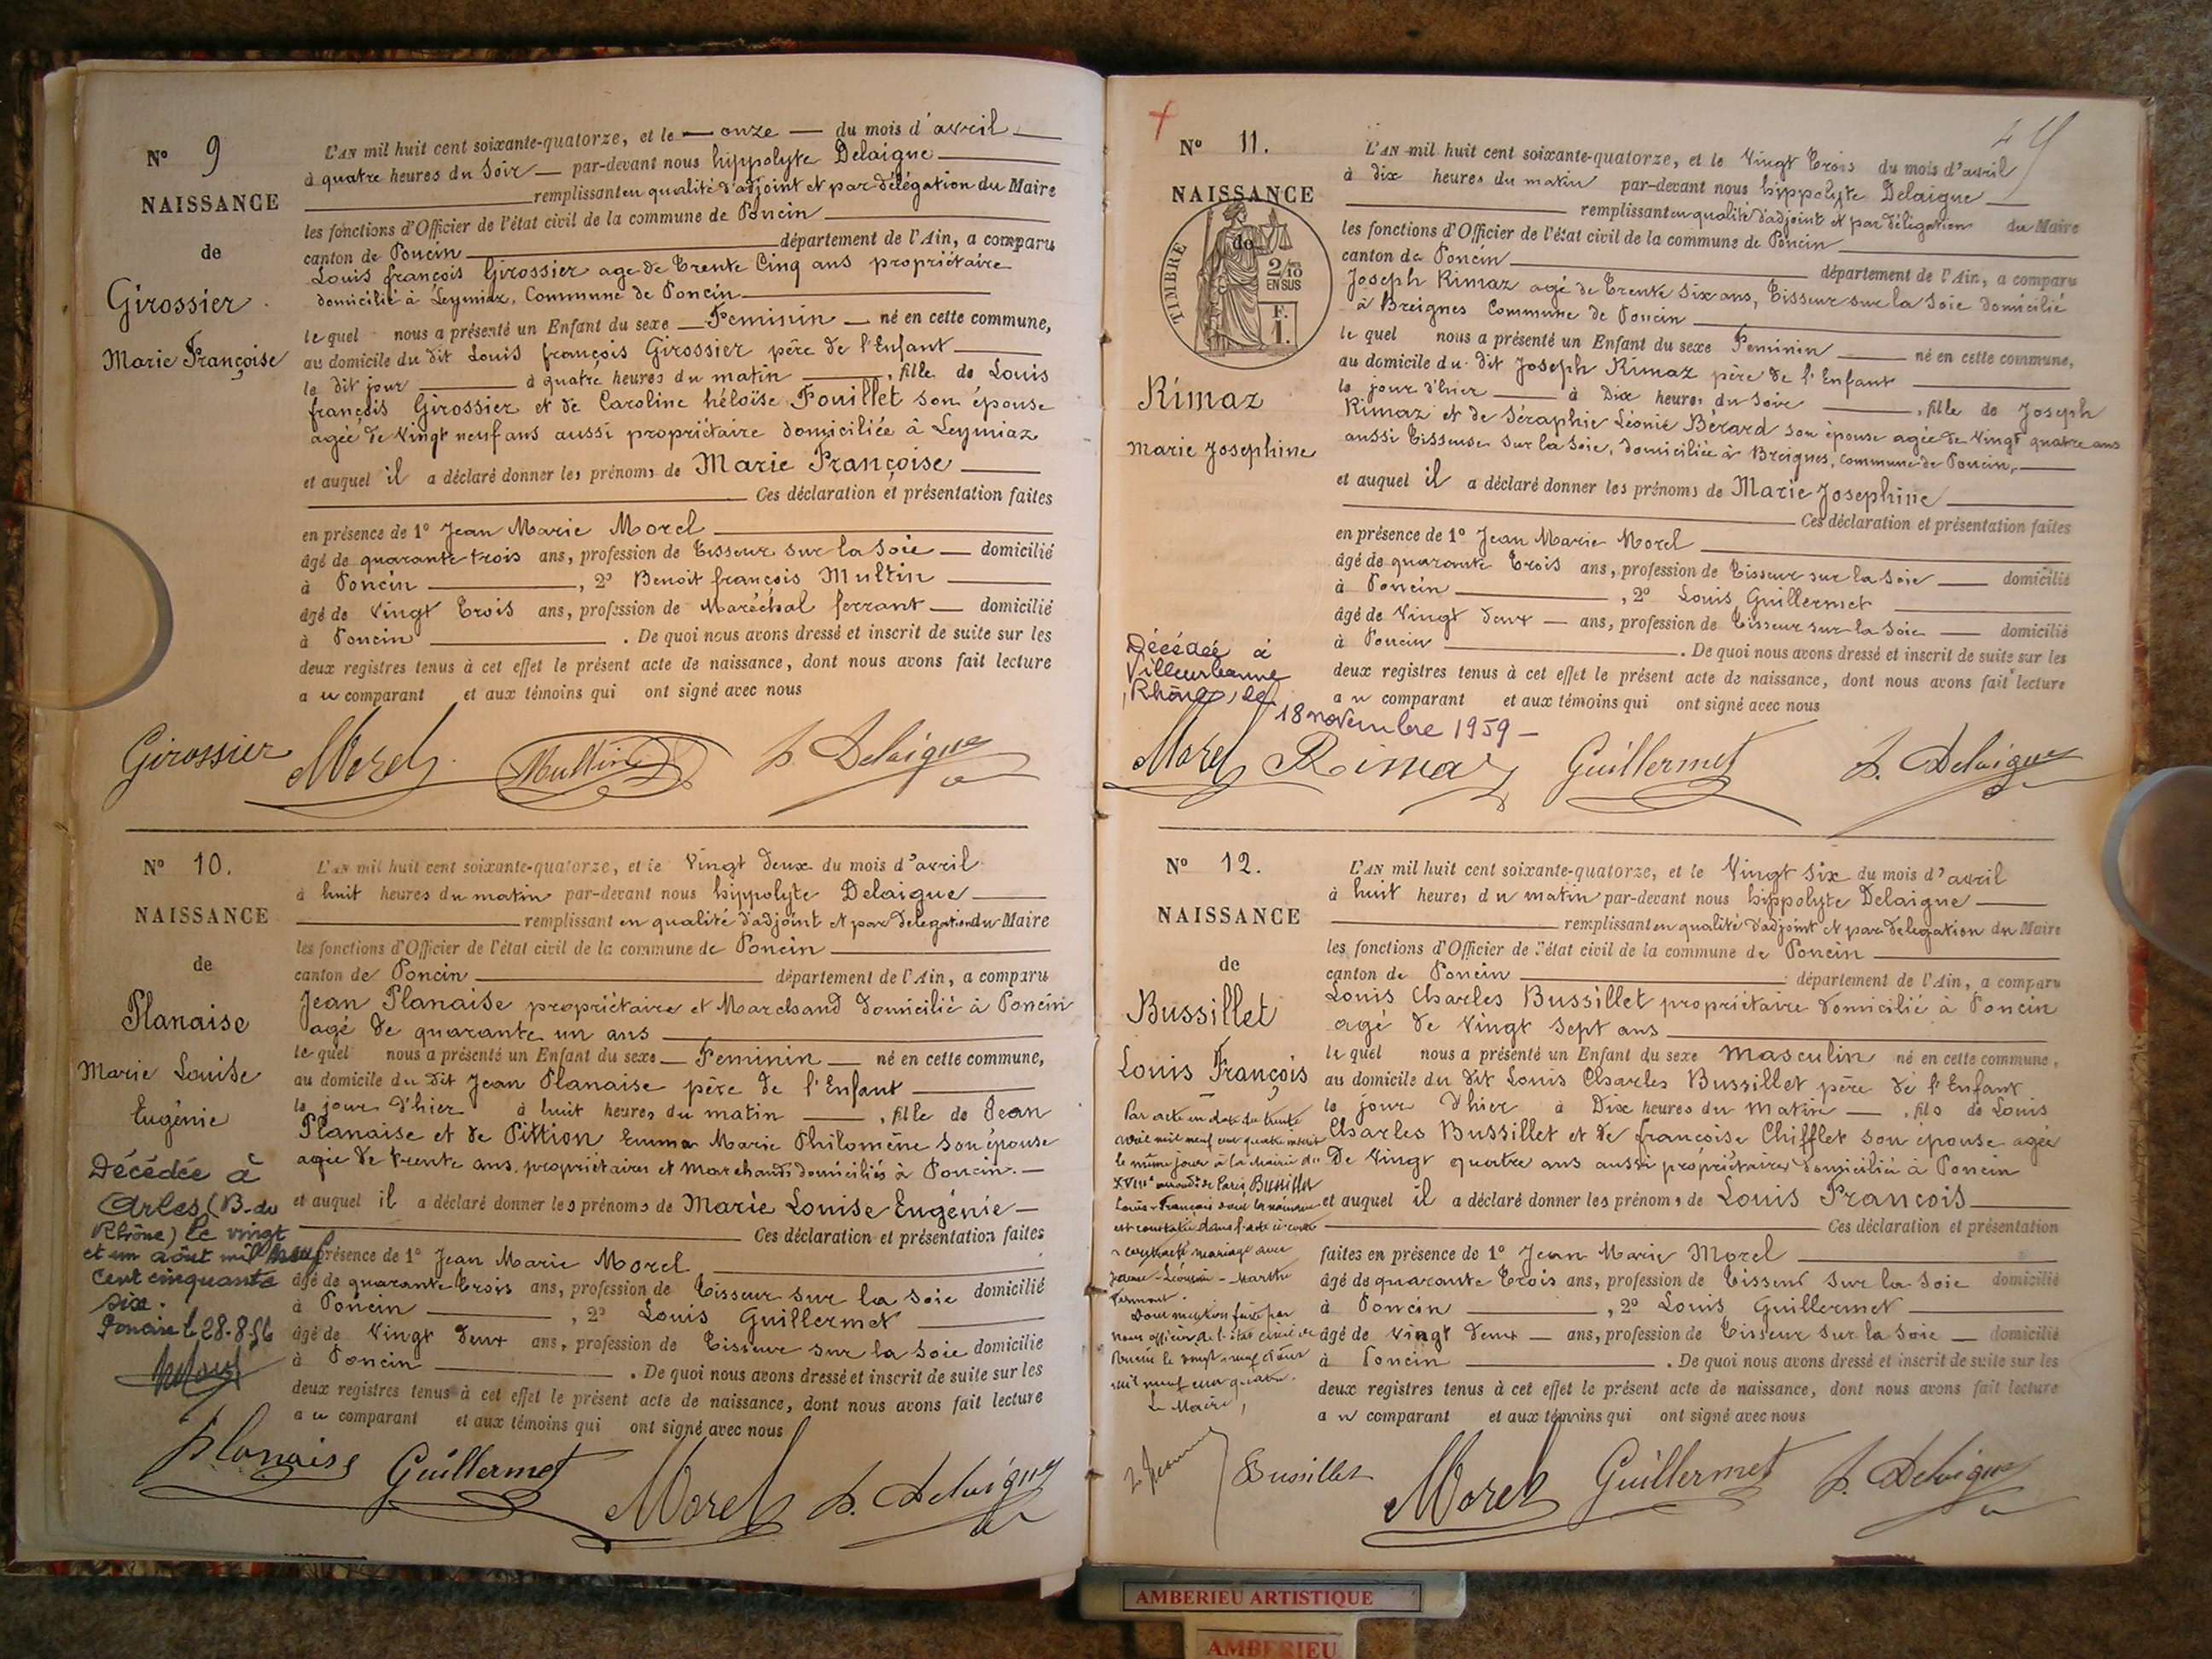 N° 9
NAISSANCE
de
Girossier
Marie Françoise
L'AN mil huit cent soixante-quatorze, et le — onze — du mois d'avril
à quatre heures du soir — par-devant nous hippolyte Delaigue
remplissant en qualité d'adjoint et par délégation du Maire
les fonctions d'Officier de l'état civil de la commune de Poncin
canton de Poncin département de l'Ain, a comparu
Louis françois Girossier age de trente cinq ans propriétaire
domicilié à Leymiaz, Commune de Poncin
le quel nous a présenté un Enfant du sexe — Feminin — né en cette commune,
au domicile du dit Louis françois Girossier père de l'Enfant
le dit jour à quatre heures du matin , fille de Louis
françois Girossier et de Caroline héloïse Pouillet son épouse
agée de vingt neuf ans aussi propriétaire domiciliée à Leymiaz
et auquel il a déclaré donner les prénoms de Marie Françoise
Ces déclaration et présentation faites
en présence de 1° Jean Marie Morel
âgé de quarante trois ans, profession de tisseur sur la soie — domicilié
à Poncin , 2° Benoit françois Multin
âgé de vingt trois ans, profession de Maréchal ferrant — domicilié
à Poncin . De quoi nous avons dressé et inscrit de suite sur les
deux registres tenus à cet effet le présent acte de naissance, dont nous avons fait lecture
au comparant et aux témoins qui ont signé avec nous
Girossier Morel Multin h. Delaigue
N° 10.
NAISSANCE
de
Planaise
Marie Louise
Eugénie
Décédée à
Arles (B. du
Rhône) le vingt
et un août mil neuf
cent cinquante
six.
Poncin le 28-8-56
L'AN mil huit cent soixante-quatorze, et le vingt deux du mois d'avril
à huit heures du matin par-devant nous hippolyte Delaigue
remplissant en qualité d'adjoint et par délégation du Maire
les fonctions d'Officier de l'état civil de la commune de Poncin
canton de Poncin département de l'Ain, a comparu
Jean Planaise propriétaire et Marchand domicilié à Poncin
agé de quarante un ans
le quel nous a présenté un Enfant du sexe — Feminin — né en cette commune,
au domicile du dit Jean Planaise père de l'Enfant
le jour d'hier à huit heures du matin — , fille de Jean
Planaise et de Pittion Emma Marie Philomène son épouse
agée de trente ans, propriétaires et marchands domiciliés à Poncin. —
et auquel il a déclaré donner les prénoms de Marie Louise Eugénie —
Ces déclaration et présentation faites
en présence de 1° Jean Marie Morel
âgé de quarante trois ans, profession de tisseur sur la soie domicilié
à Poncin , 2° Louis Guillermet
âgé de vingt deux ans, profession de tisseur sur la soie domicilié
à Poncin . De quoi nous avons dressé et inscrit de suite sur les
deux registres tenus à cet effet le présent acte de naissance, dont nous avons fait lecture
au comparant et aux témoins qui ont signé avec nous
Planaise Guillermet Morel h. Delaigue
N° 11.
NAISSANCE
de
TIMBRE
2/10
EN SUS
F.
1.
Rimaz
Marie Josephine
Décédée à
Villeurbanne
(Rhône), le
18 novembre 1959 —
L'AN mil huit cent soixante-quatorze, et le vingt trois du mois d'avril
à dix heures du matin par-devant nous hippolyte Delaigue
remplissant en qualité d'adjoint et par délégation du Maire
les fonctions d'Officier de l'état civil de la commune de Poncin
canton de Poncin département de l'Ain, a comparu
Joseph Rimaz agé de trente six ans, tisseur sur la soie domicilié
à Breignes Commune de Poncin
le quel nous a présenté un Enfant du sexe Feminin né en cette commune,
au domicile du dit Joseph Rimaz père de l'Enfant
le jour d'hier à Dix heures du soir , fille de Joseph
Rimaz et de Séraphie Léonie Bérard son épouse agée de vingt quatre ans
aussi tisseuse sur la soie, domiciliée à Breignes, commune de Poncin,
et auquel il a déclaré donner les prénoms de Marie Josephine
Ces déclaration et présentation faites
en présence de 1° Jean Marie Morel
âgé de quarante trois ans, profession de tisseur sur la soie — domicilié
à Poncin , 2° Louis Guillermet
âgé de vingt deux — ans, profession de tisseur sur la soie — domicilié
à Poncin . De quoi nous avons dressé et inscrit de suite sur les
deux registres tenus à cet effet le présent acte de naissance, dont nous avons fait lecture
au comparant et aux témoins qui ont signé avec nous
Morel Rimaz Guillermet h. Delaigue
N° 12.
NAISSANCE
de
Bussillet
Louis François
Par acte en date du trente
mil neuf cent quatre inscrit
le même jour à la Mairie du
XVIII arrondt de Paris Bussillet
Louis-François dont la naissance
est constatée dans l'acte ci-contre
a contracté mariage avec
Marthe
Dont mention faite par
nous officier de l'état civil de
Poncin le vingt-neuf
mil neuf cent quatre.
Le Maire,
L'AN mil huit cent soixante-quatorze, et le vingt six du mois d'avril
à huit heures du matin par-devant nous hippolyte Delaigue
remplissant en qualité d'adjoint et par délégation du Maire
les fonctions d'Officier de l'état civil de la commune de Poncin
canton de Poncin département de l'Ain, a comparu
Louis Charles Bussillet propriétaire domicilié à Poncin
agé de vingt sept ans
le quel nous a présenté un Enfant du sexe masculin né en cette commune,
au domicile du dit Louis Charles Bussillet père de l'Enfant
le jour d'hier à Dix heures du matin — , fils de Louis
Charles Bussillet et de françoise Chifflet son épouse agée
de vingt quatre ans aussi propriétaire domiciliée à Poncin
et auquel il a déclaré donner les prénoms de Louis François
Ces déclaration et présentation
faites en présence de 1° Jean Marie Morel
âgé de quarante trois ans, profession de tisseur sur la soie domicilié
à Poncin , 2° Louis Guillermet
âgé de vingt deux — ans, profession de tisseur sur la soie — domicilié
à Poncin . De quoi nous avons dressé et inscrit de suite sur les
deux registres tenus à cet effet le présent acte de naissance, dont nous avons fait lecture
au comparant et aux témoins qui ont signé avec nous
Bussillet Morel Guillermet h. Delaigue
AMBERIEU ARTISTIQUE
AMBERIEU